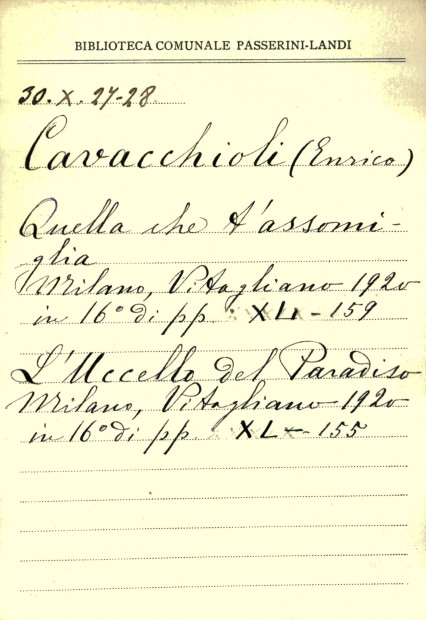 BIBLIOTECA COMUNALE PASSERINI-LANDI
30. X. 27-28
Cavacchioli (Enrico)
Quella che t'assomi-
glia
Milano, Vitagliano 1920
in 16° di pp. XL - 159
L'Uccello del Paradiso
Milano, Vitagliano 1920
in 16° di pp. XL - 155